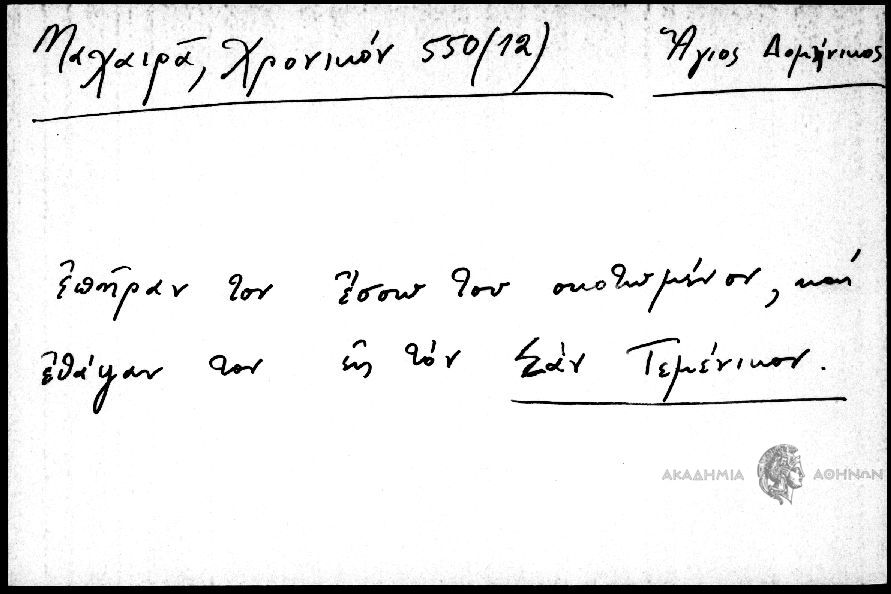 Μαχαιρᾶ, Χρονικόν 550(12) Ἅγιος Δομήνικος
ἐπῆραν τον ἔσσω του σκοτωμένον, καὶ
ἐθάψαν τον εἰς τὸν Σὰν Τεμένικον.
ΑΚΑΔΗΜΙΑ ΑΘΗΝΩΝ